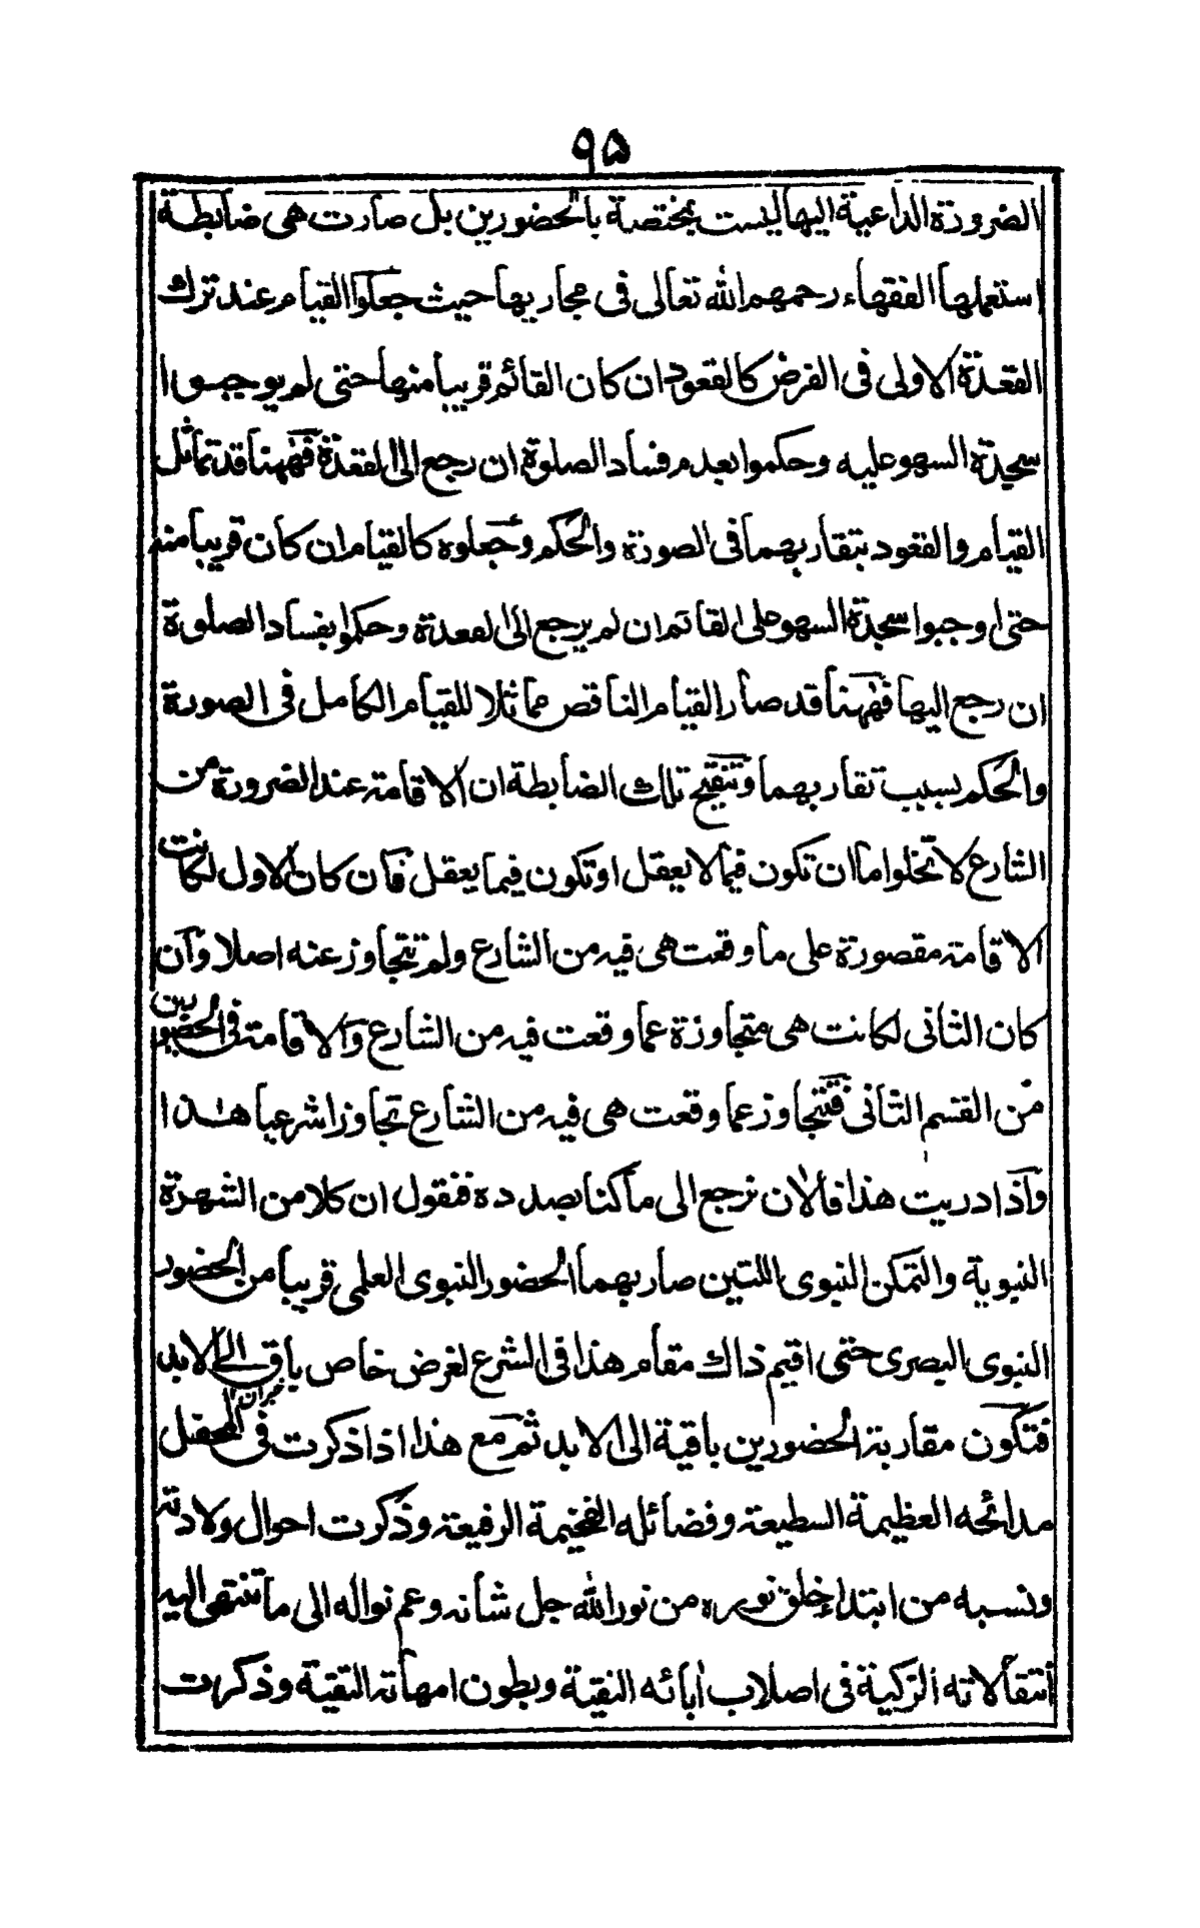 ٩٥
الضرورة الداعية اليها ليست بمختصة بالحضورين بل صارت هى ضابطة
استعملها الفقهاء رحمهم الله تعالى فى مجاريها حيث جعلوا القيام عند ترك
القعدة الاولى فى الفرض كالقعود ان كان القائم قريبا منها حتى لم يوجبوا
سجدة السهو عليه وحكموا بعدم فساد الصلوة ان رجع الى القعدة فههنا قد تماثل
القيام والقعود بتقاربهما فى الصورة والحكم وجعلوه كالقيام ان كان قريبا منه
حتى اوجبوا سجدة السهو على القائم ان لم يرجع الى القعدة وحكموا بفساد الصلوة
ان رجع اليها فههنا قد صار القيام الناقص مماثلا للقيام الكامل فى الصورة
والحكم بسبب تقاربهما وتنقيح تلك الضابطة ان الاقامة عند الضرورة من
الشارع لا تخلوا ما ان تكون فيما لا يعقل او تكون فيما يعقل فان كان الاول لكانت
الاقامة مقصورة على ما وقعت هى فيه من الشارع ولم تتجاوز عنه اصلا وان
كان الثانى لكانت هى متجاوزة عما وقعت فيه من الشارع والاقامة فى الحضورين
من القسم الثانى فتتجاوز عما وقعت هى فيه من الشارع تجاوزا شرعيا هذا
واذا دريت هذا فالان نرجع الى ما كنا بصدده فنقول ان كلا من الشهرة
النبوية والتمكن النبوى اللتين صار بهما الحضور النبوى العلمى قريبا من الحضور
النبوى البصرى حتى اقيم ذاك مقام هذا فى الشرع لغرض خاص باق الى الابد
فتكون مقاربة الحضورين باقية الى الابد ثم مع هذا اذا ذكرت فى المحفل
مدائحه العظيمة السطيعة وفضائله الفخيمة الرفيعة وذكرت احوال ولادته
ونسبه من ابتداء خلق نوره من نور الله جل شانه وعم نواله الى ما تنتهى اليه
انتقالاته الزكية فى اصلاب ابائه النقية وبطون امهاته التقية وذكرت